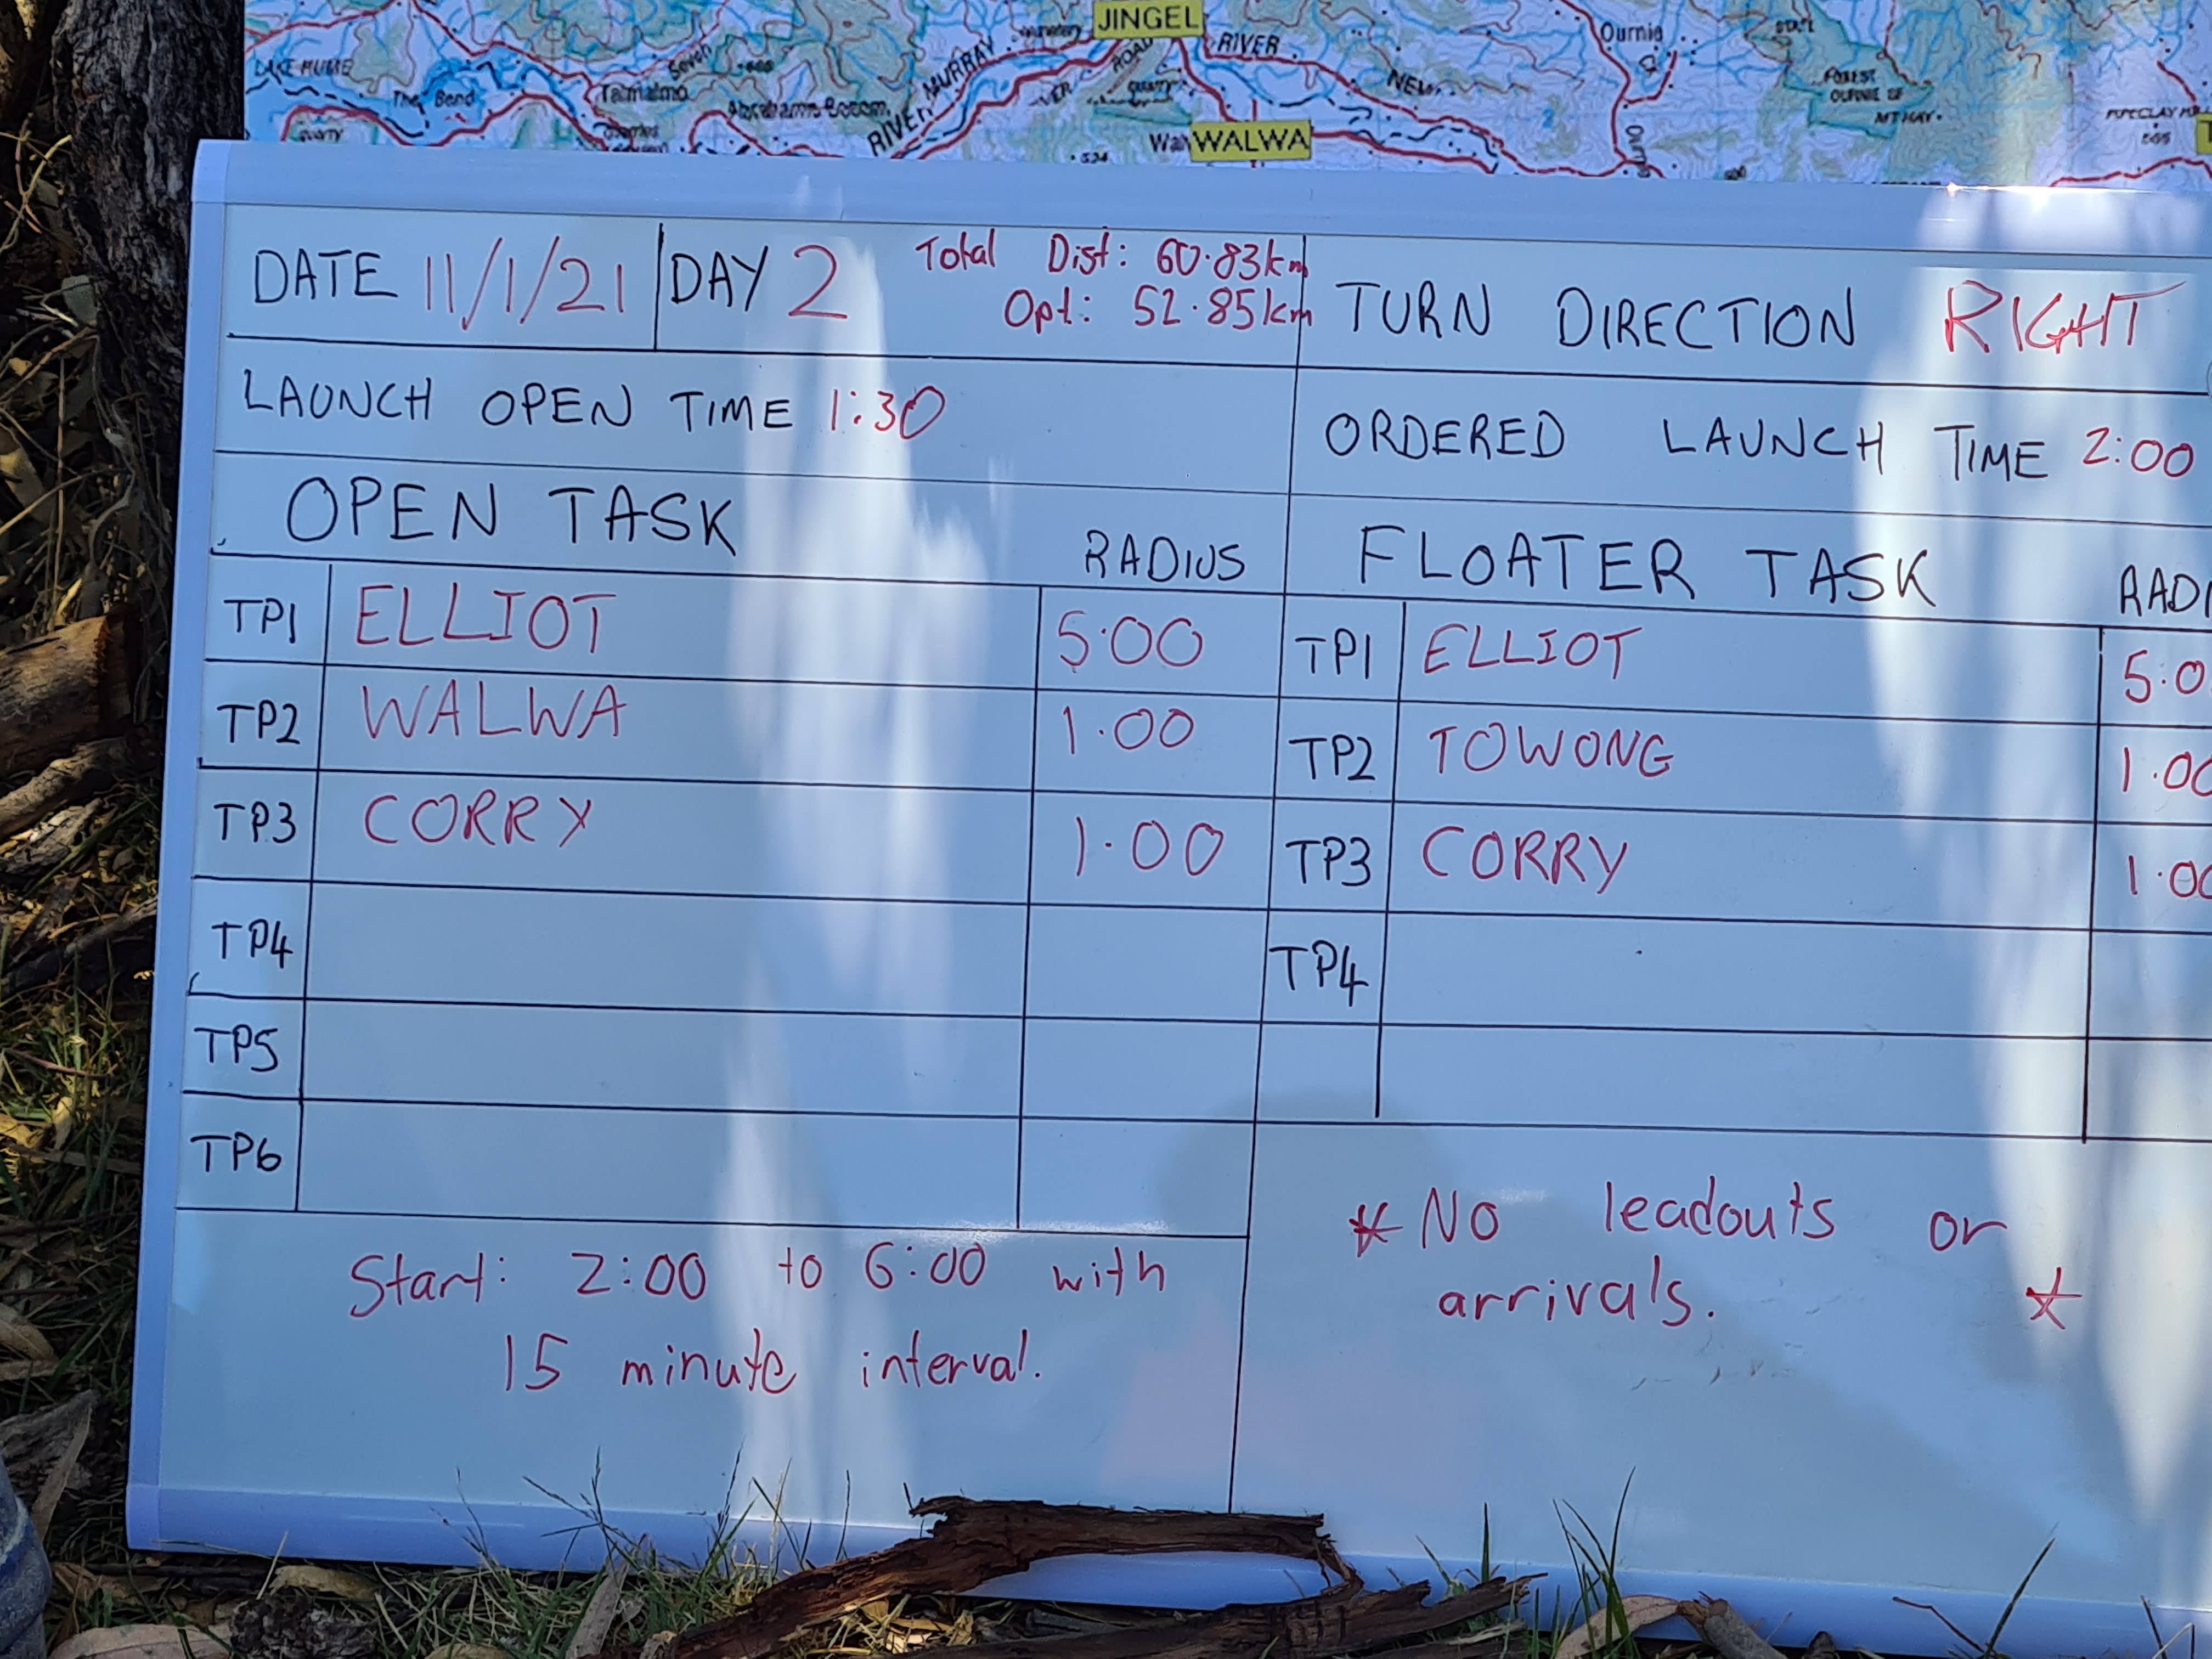 LAKE HUME
The Bend
Talmalmo
RIVER
MURRAY
JINGEL
ROAD
RIVER
Ournie
FOREST
WALWA
DATE 11/1/21 DAY 2 Total Dist: 60.83km
Opt: 52.85km
TURN DIRECTION RIGHT
LAUNCH OPEN TIME 1:30
ORDERED LAUNCH TIME 2:00
OPEN TASK RADIUS
TP1 ELLIOT 5.00
TP2 WALWA 1.00
TP3 CORRY 1.00
TP4
TP5
TP6
FLOATER TASK RADI
TP1 ELLIOT 5.0
TP2 TOWONG 1.00
TP3 CORRY 1.00
TP4
Start: 2:00 to 6:00 with
15 minute interval.
* No leadouts or
arrivals. *